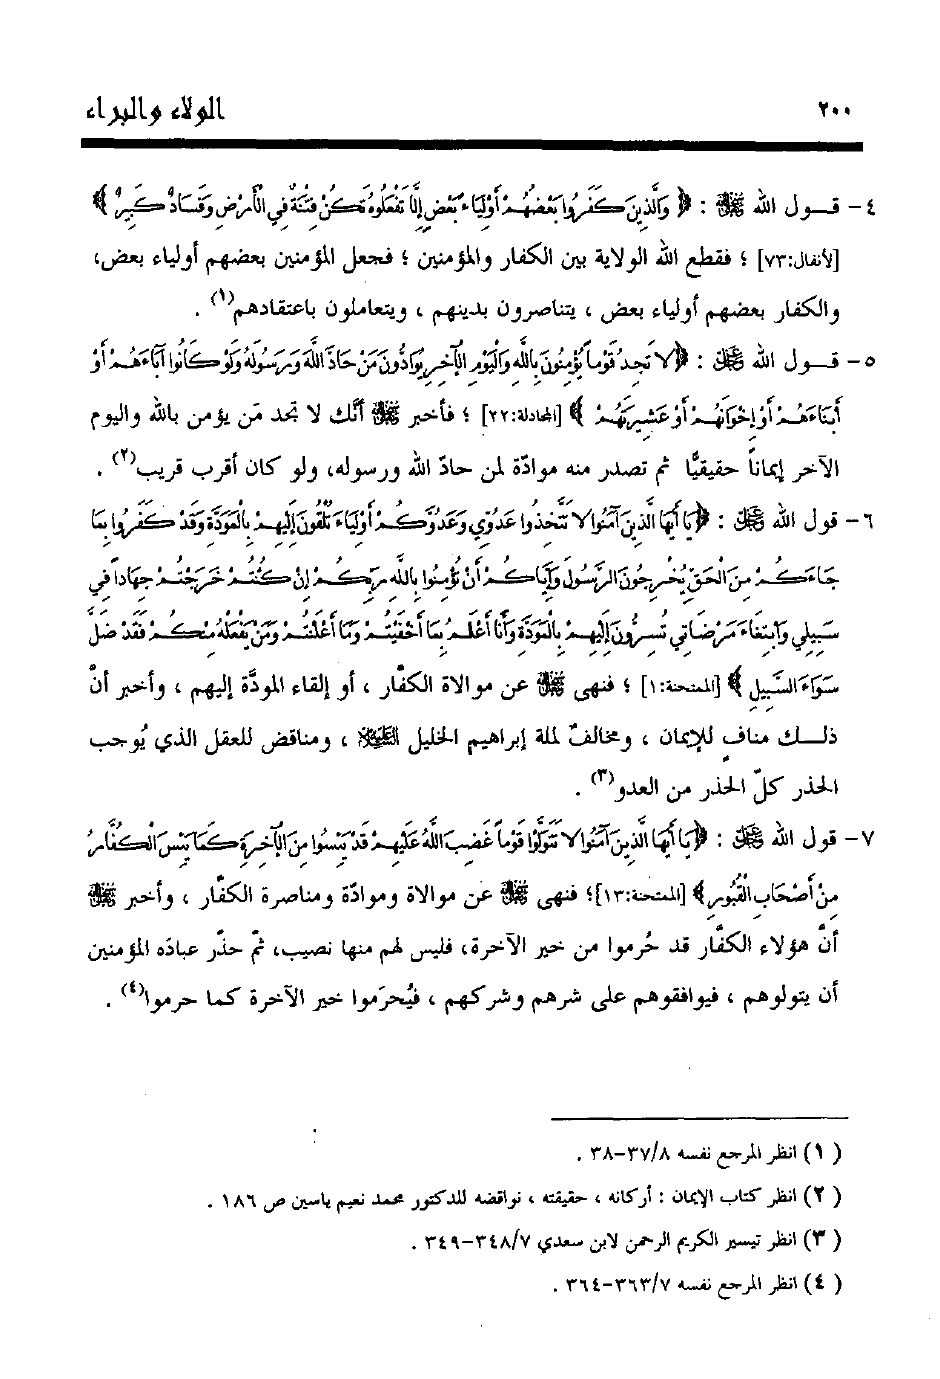 ٢٠٠ الولاء والبراء
٤- قــول الله ﷻ : ﴿ وَالَّذِينَ كَفَرُوا بَعْضُهُمْ أَوْلِيَاءُ بَعْضٍ إِلَّا تَفْعَلُوهُ تَكُنْ فِتْنَةٌ فِي الْأَرْضِ وَفَسَادٌ كَبِيرٌ ﴾
[لأنفال:٧٣] ؛ فقطع الله الولاية بين الكفار والمؤمنين ؛ فجعل المؤمنين بعضهم أولياء بعض،
والكفار بعضهم أولياء بعض ، يتناصرون بدينهم ، ويتعاملون باعتقادهم(١) .
٥- قــول الله ﷻ : ﴿لَا تَجِدُ قَوْماً يُؤْمِنُونَ بِاللَّهِ وَالْيَوْمِ الْآخِرِ يُوَادُّونَ مَنْ حَادَّ اللَّهَ وَرَسُولَهُ وَلَوْ كَانُوا آبَاءَهُمْ أَوْ
أَبْنَاءَهُمْ أَوْ إِخْوَانَهُمْ أَوْ عَشِيرَتَهُمْ ﴾ [المجادلة:٢٢] ؛ فأخبر ﷻ أنّك لا تجد مَن يؤمن بالله واليوم
الآخر إيماناً حقيقيًّا ثم تصدر منه موادّة لمن حادّ الله ورسوله، ولو كان أقرب قريب(٢) .
٦- قول الله ﷻ : ﴿يَا أَيُّهَا الَّذِينَ آمَنُوا لَا تَتَّخِذُوا عَدُوِّي وَعَدُوَّكُمْ أَوْلِيَاءَ تُلْقُونَ إِلَيْهِمْ بِالْمَوَدَّةِ وَقَدْ كَفَرُوا بِمَا
جَاءَكُمْ مِنَ الْحَقِّ يُخْرِجُونَ الرَّسُولَ وَإِيَّاكُمْ أَنْ تُؤْمِنُوا بِاللَّهِ رَبِّكُمْ إِنْ كُنْتُمْ خَرَجْتُمْ جِهَاداً فِي
سَبِيلِي وَابْتِغَاءَ مَرْضَاتِي تُسِرُّونَ إِلَيْهِمْ بِالْمَوَدَّةِ وَأَنَا أَعْلَمُ بِمَا أَخْفَيْتُمْ وَمَا أَعْلَنْتُمْ وَمَنْ يَفْعَلْهُ مِنْكُمْ فَقَدْ ضَلَّ
سَوَاءَ السَّبِيلِ ﴾ [الممتحنة:١] ؛ فنهى ﷻ عن موالاة الكفّار ، أو إلقاء المودَّة إليهم ، وأخبر أنّ
ذلــك منافٍ للإيمان ، ومخالفٌ لملة إبراهيم الخليل ؑ ، ومناقض للعقل الذي يُوجب
الحذر كلّ الحذر من العدو(٣) .
٧- قول الله ﷻ : ﴿يَا أَيُّهَا الَّذِينَ آمَنُوا لَا تَتَوَلَّوْا قَوْماً غَضِبَ اللَّهُ عَلَيْهِمْ قَدْ يَئِسُوا مِنَ الْآخِرَةِ كَمَا يَئِسَ الْكُفَّارُ
مِنْ أَصْحَابِ الْقُبُورِ﴾ [الممتحنة:١٣]؛ فنهى ﷻ عن موالاة وموادّة ومناصرة الكفّار ، وأخبر ﷻ
أنّ هؤلاء الكفّار قد حُرموا من خير الآخرة، فليس لهم منها نصيب، ثمّ حذّر عبادَه المؤمنين
أن يتولوهم ، فيوافقوهم على شرهم وشركهم ، فيُحرَموا خير الآخرة كما حرموا(٤) .
( ١) انظر المرجع نفسه ٣٧/٨–٣٨ .
( ٢) انظر كتاب الإيمان : أركانه ، حقيقته ، نواقضه للدكتور محمد نعيم ياسين ص ١٨٦ .
( ٣) انظر تيسير الكريم الرحمن لابن سعدي ٣٤٨/٧–٣٤٩ .
( ٤) انظر المرجع نفسه ٣٦٣/٧–٣٦٤ .